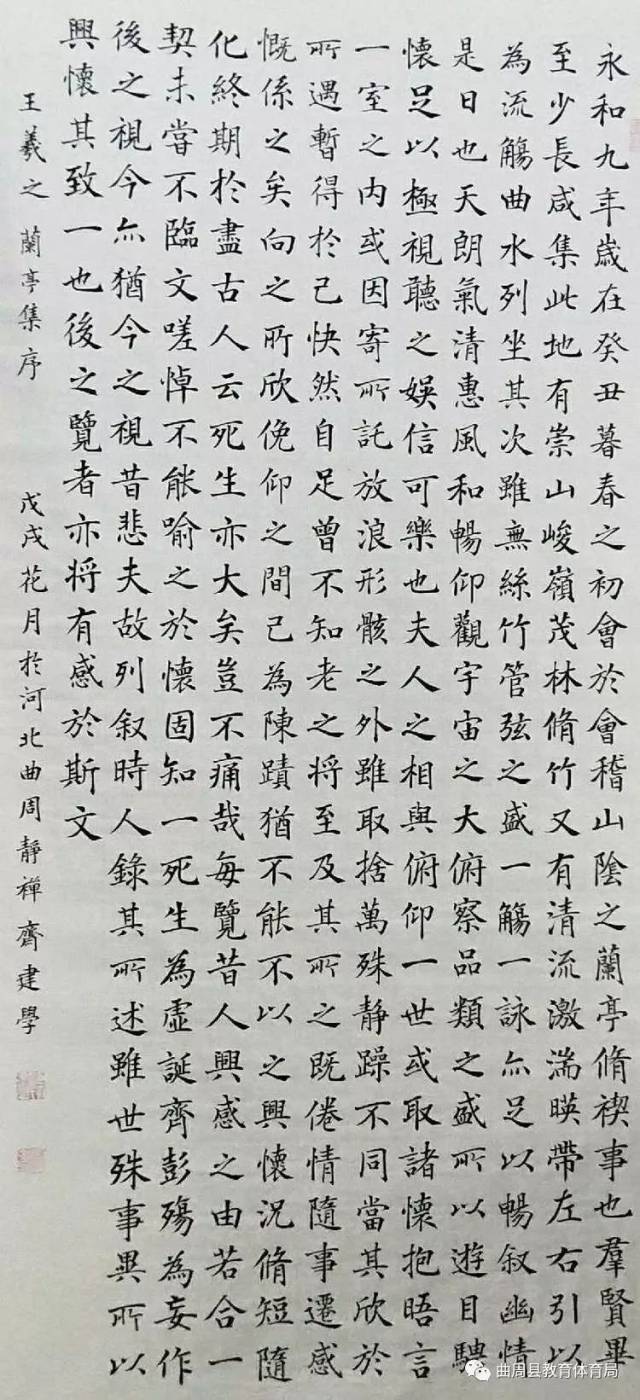 永和九年歲在癸丑暮春之初會於會稽山陰之蘭亭脩禊事也羣賢畢
至少長咸集此地有崇山峻嶺茂林脩竹又有清流激湍暎帶左右引以
為流觴曲水列坐其次雖無絲竹管弦之盛一觴一詠亦足以暢叙幽情
是日也天朗氣清惠風和暢仰觀宇宙之大俯察品類之盛所以遊目騁
懷足以極視聽之娛信可樂也夫人之相與俯仰一世或取諸懷抱晤言
一室之內或因寄所託放浪形骸之外雖取捨萬殊靜躁不同當其欣於
所遇暫得於己快然自足曾不知老之將至及其所之既倦情隨事遷感
慨係之矣向之所欣俛仰之間已為陳蹟猶不能不以之興懷況脩短隨
化終期於盡古人云死生亦大矣豈不痛哉每覽昔人興感之由若合一
契未嘗不臨文嗟悼不能喻之於懷固知一死生為虛誕齊彭殤為妄作
後之視今亦猶今之視昔悲夫故列叙時人錄其所述雖世殊事異所以
興懷其致一也後之覽者亦將有感於斯文
王羲之蘭亭集序 戊戌花月於河北曲周靜禪齋建學
曲周县教育体育局